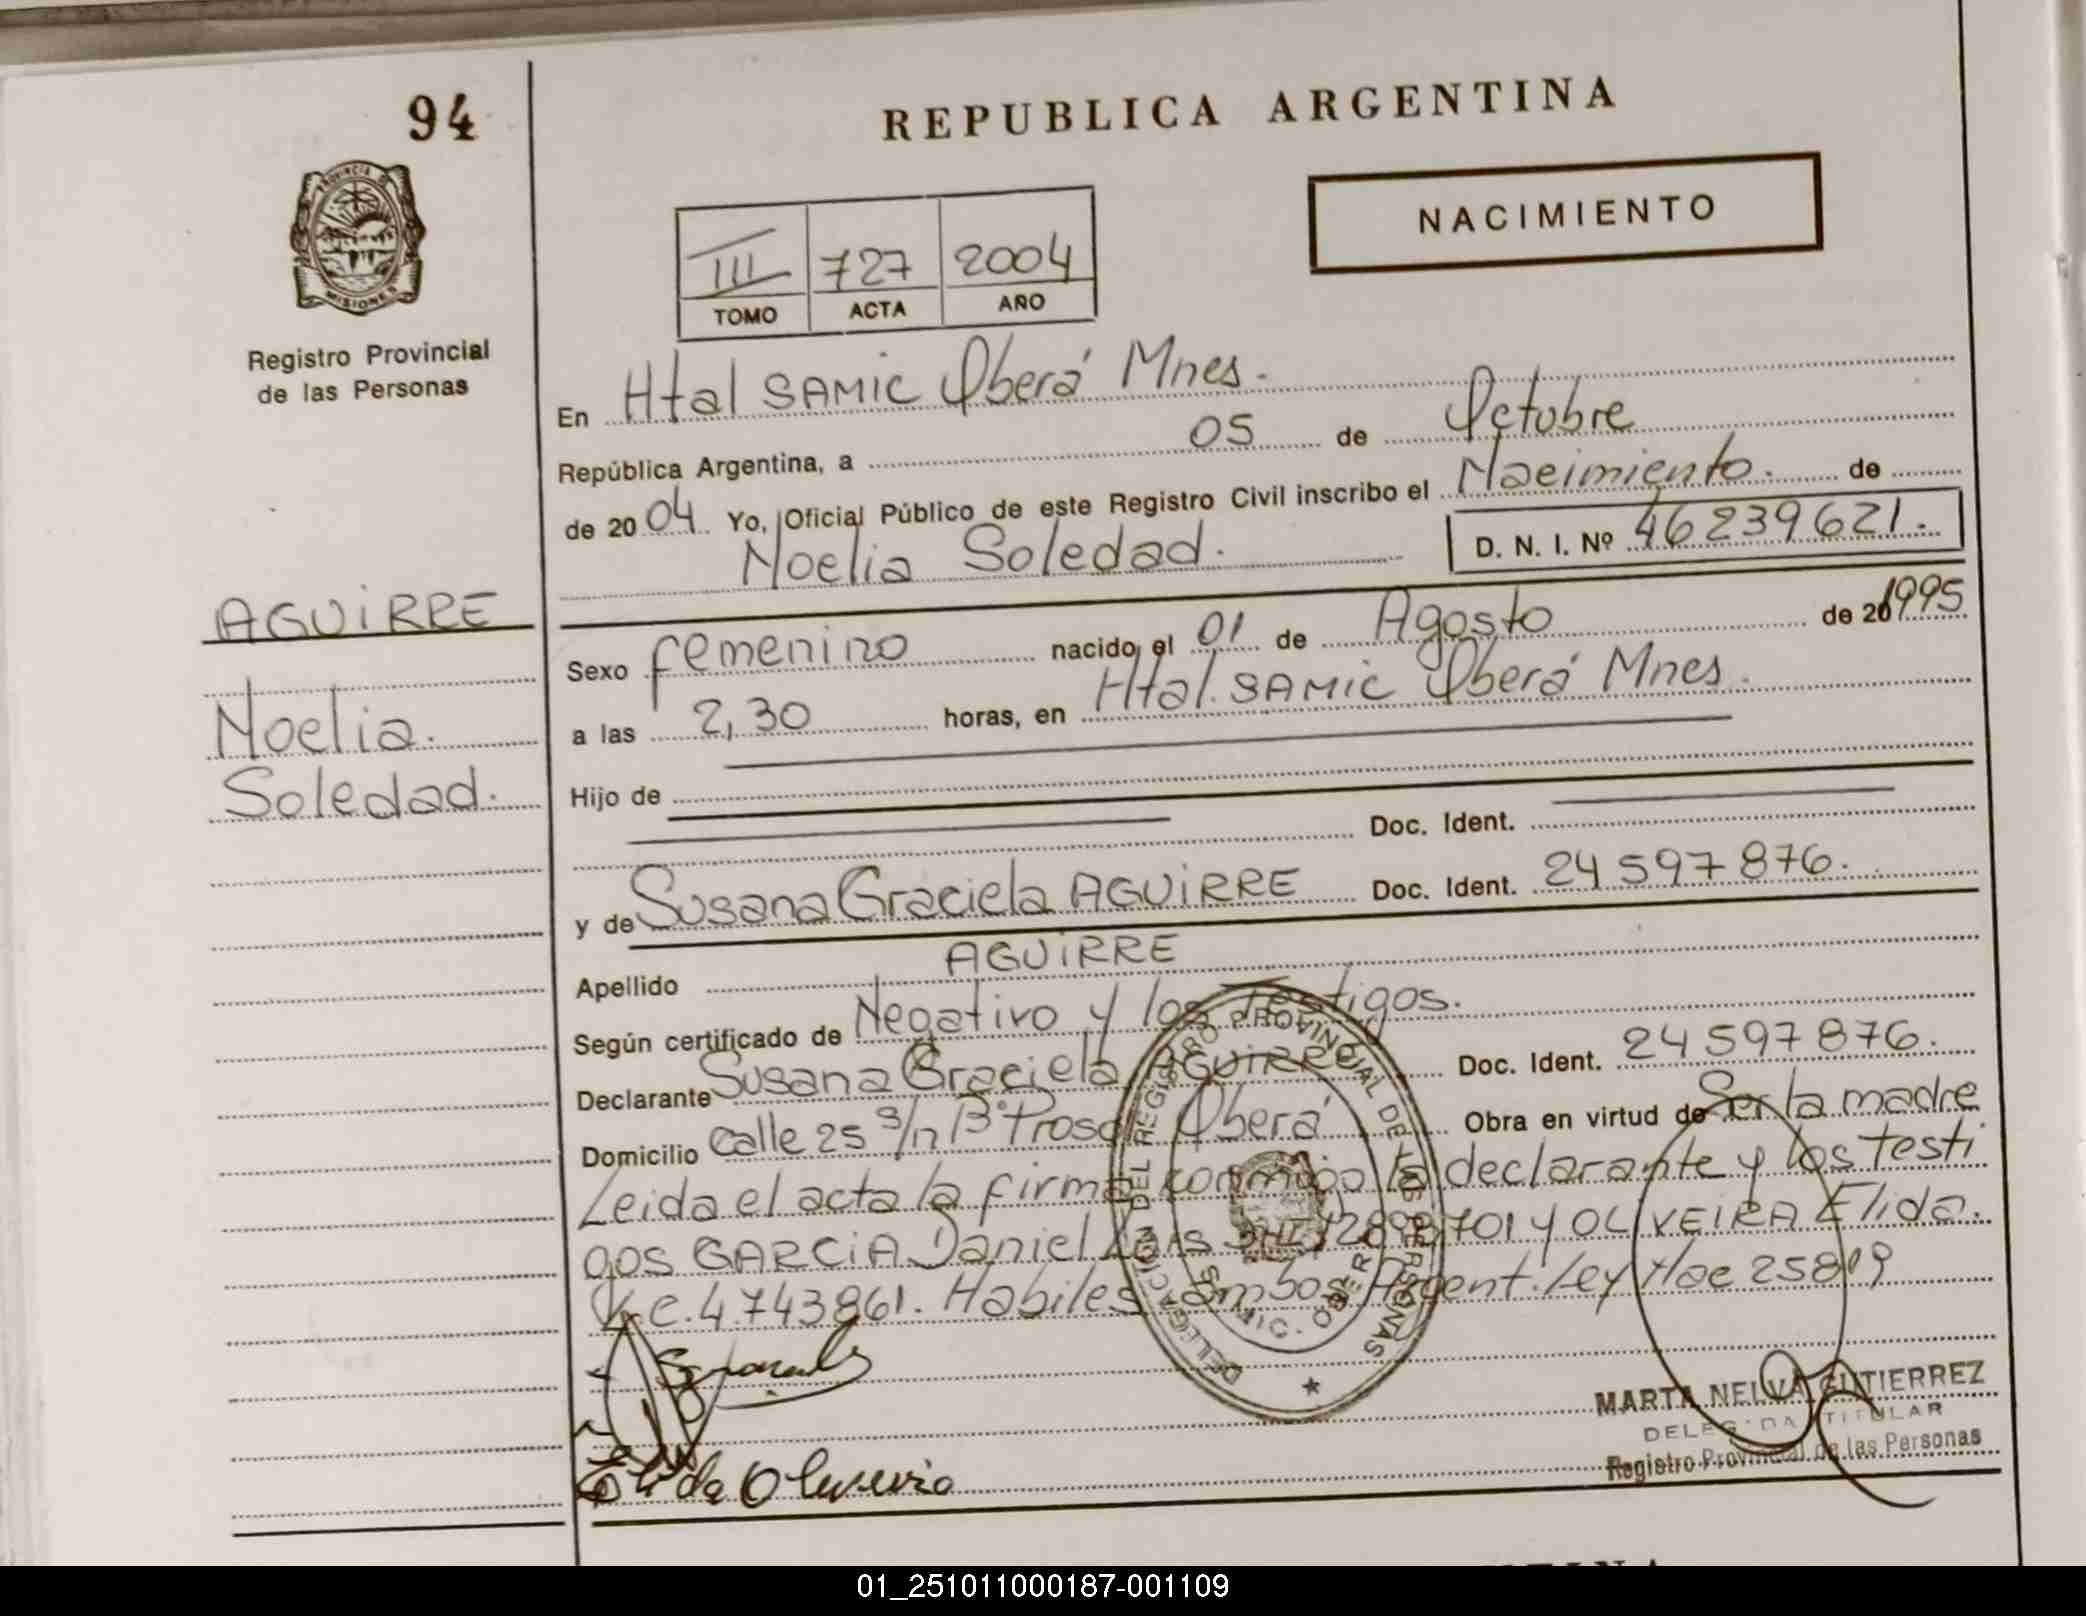 94
REPUBLICA ARGENTINA
PROVINCIA DE
MISIONES
NACIMIENTO
III 727 2004
TOMO ACTA AÑO
Registro Provincial
de las Personas
En Htal SAMIC Oberá Mnes.
República Argentina, a 05 de Octubre
de 2004 Yo, Oficial Público de este Registro Civil inscribo el Nacimiento. de
Noelia Soledad. D. N. I. Nº 46239621.
AGUiRRE
Noelia.
Soledad.
Sexo femenino nacido el 01 de Agosto de 20 1995
a las 2,30 horas, en Htal. SAMIC Oberá Mnes.
Hijo de
Doc. Ident.
y de Susana Graciela AGUiRRE Doc. Ident. 24597876.
Apellido AGUiRRE
Según certificado de Negativo y los testigos.
Declarante Susana Graciela AGUiRRE Doc. Ident. 24597876.
Domicilio Calle 25 s/n Bº Prosol Oberá Obra en virtud de Ser la madre
Leida el acta la firma conmigo la declarante y los testi
gos GARCiA Daniel Luis DNI 12898701 y OLiVEIRA Elida.
L.C. 4743861. Habiles ambos Argent. Ley Nac 25819
DELEGACION DEL REGISTRO PROVINCIAL DE LAS PERSONAS
SAMIC - OBERA
Elida Oliveira
MARTA NELVA GUTIERREZ
DELEGADA TITULAR
Registro Provincial de las Personas
01_251011000187-001109